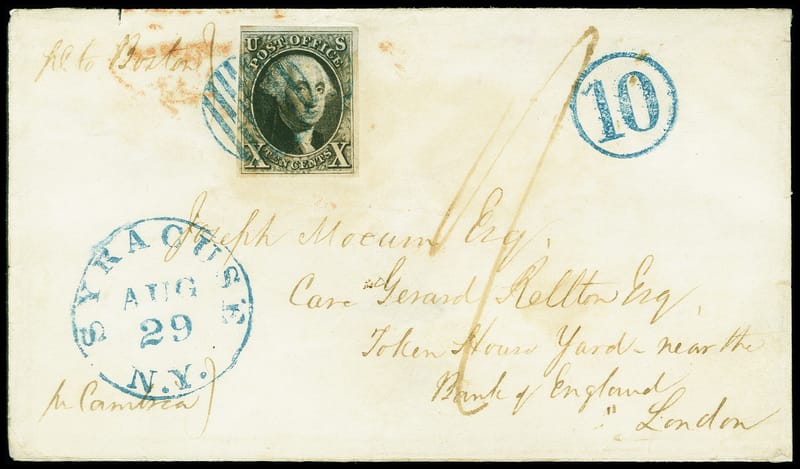 pd to Boston
U S
POST OFFICE
X TEN CENTS X
10
SYRACUSE
AUG
29
N.Y.
Joseph Mocum Esq.
Care Gerard Rellton Esq.
Token House Yard - near the
Bank of England
London
pr Cambria